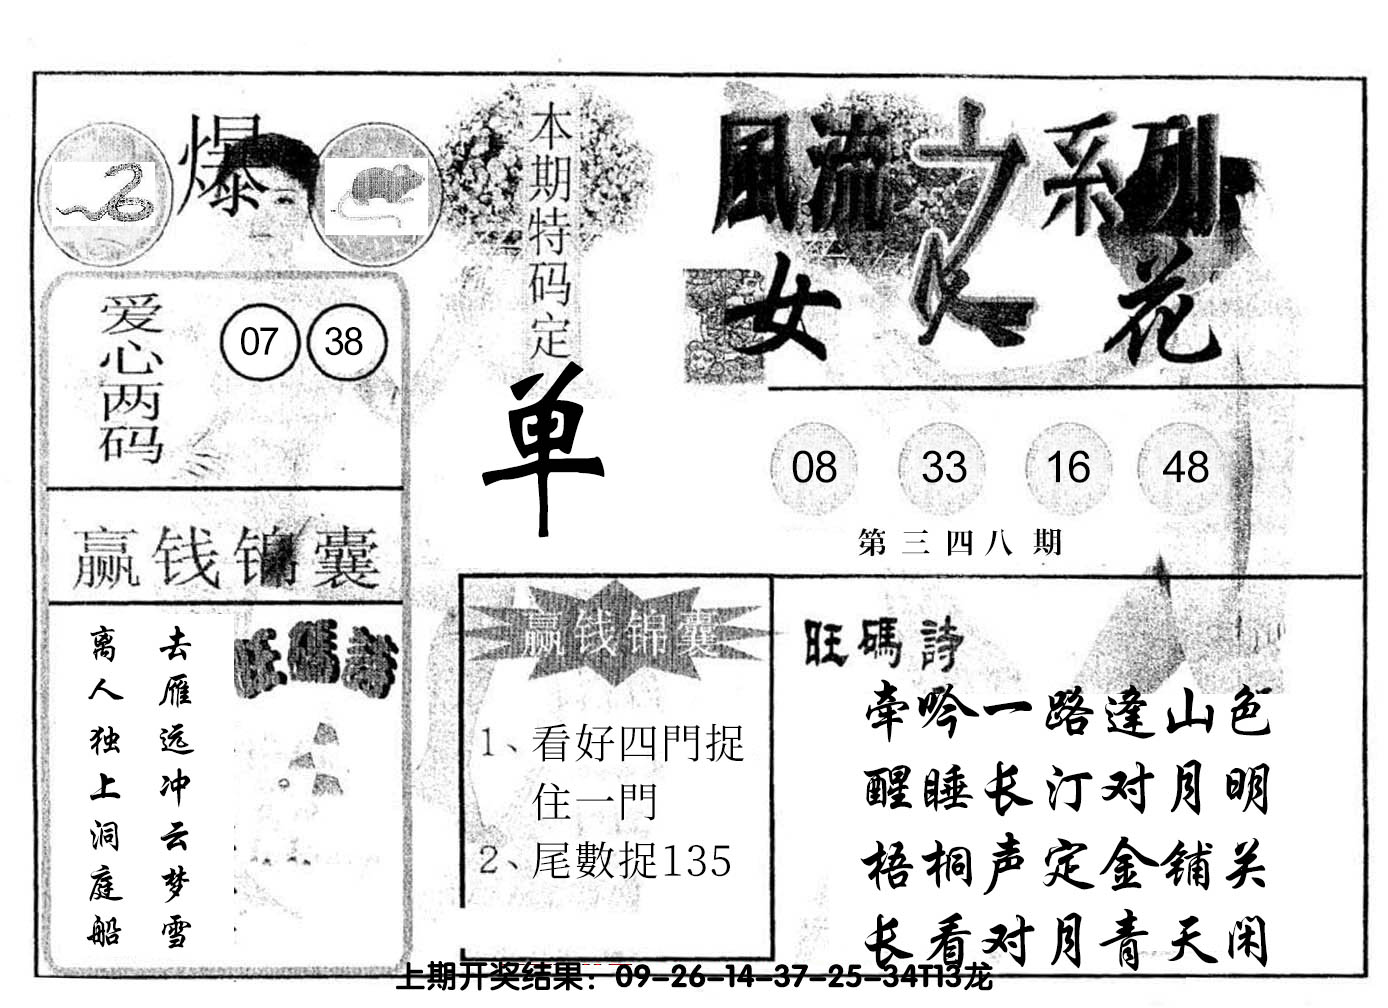 爆
爱心两码
07 38
赢钱锦囊
去雁远冲云梦雪
离人独上洞庭船
旺碼詩
本期特码定
单
風流之系列
女人花
08 33 16 48
第三四八期
赢钱锦囊
1、看好四門捉
住一門
2、尾數捉135
旺碼詩
牵吟一路逢山色
醒睡长汀对月明
梧桐声定金铺关
长看对月青天闲
上期开奖结果：09-26-14-37-25-34T13龙